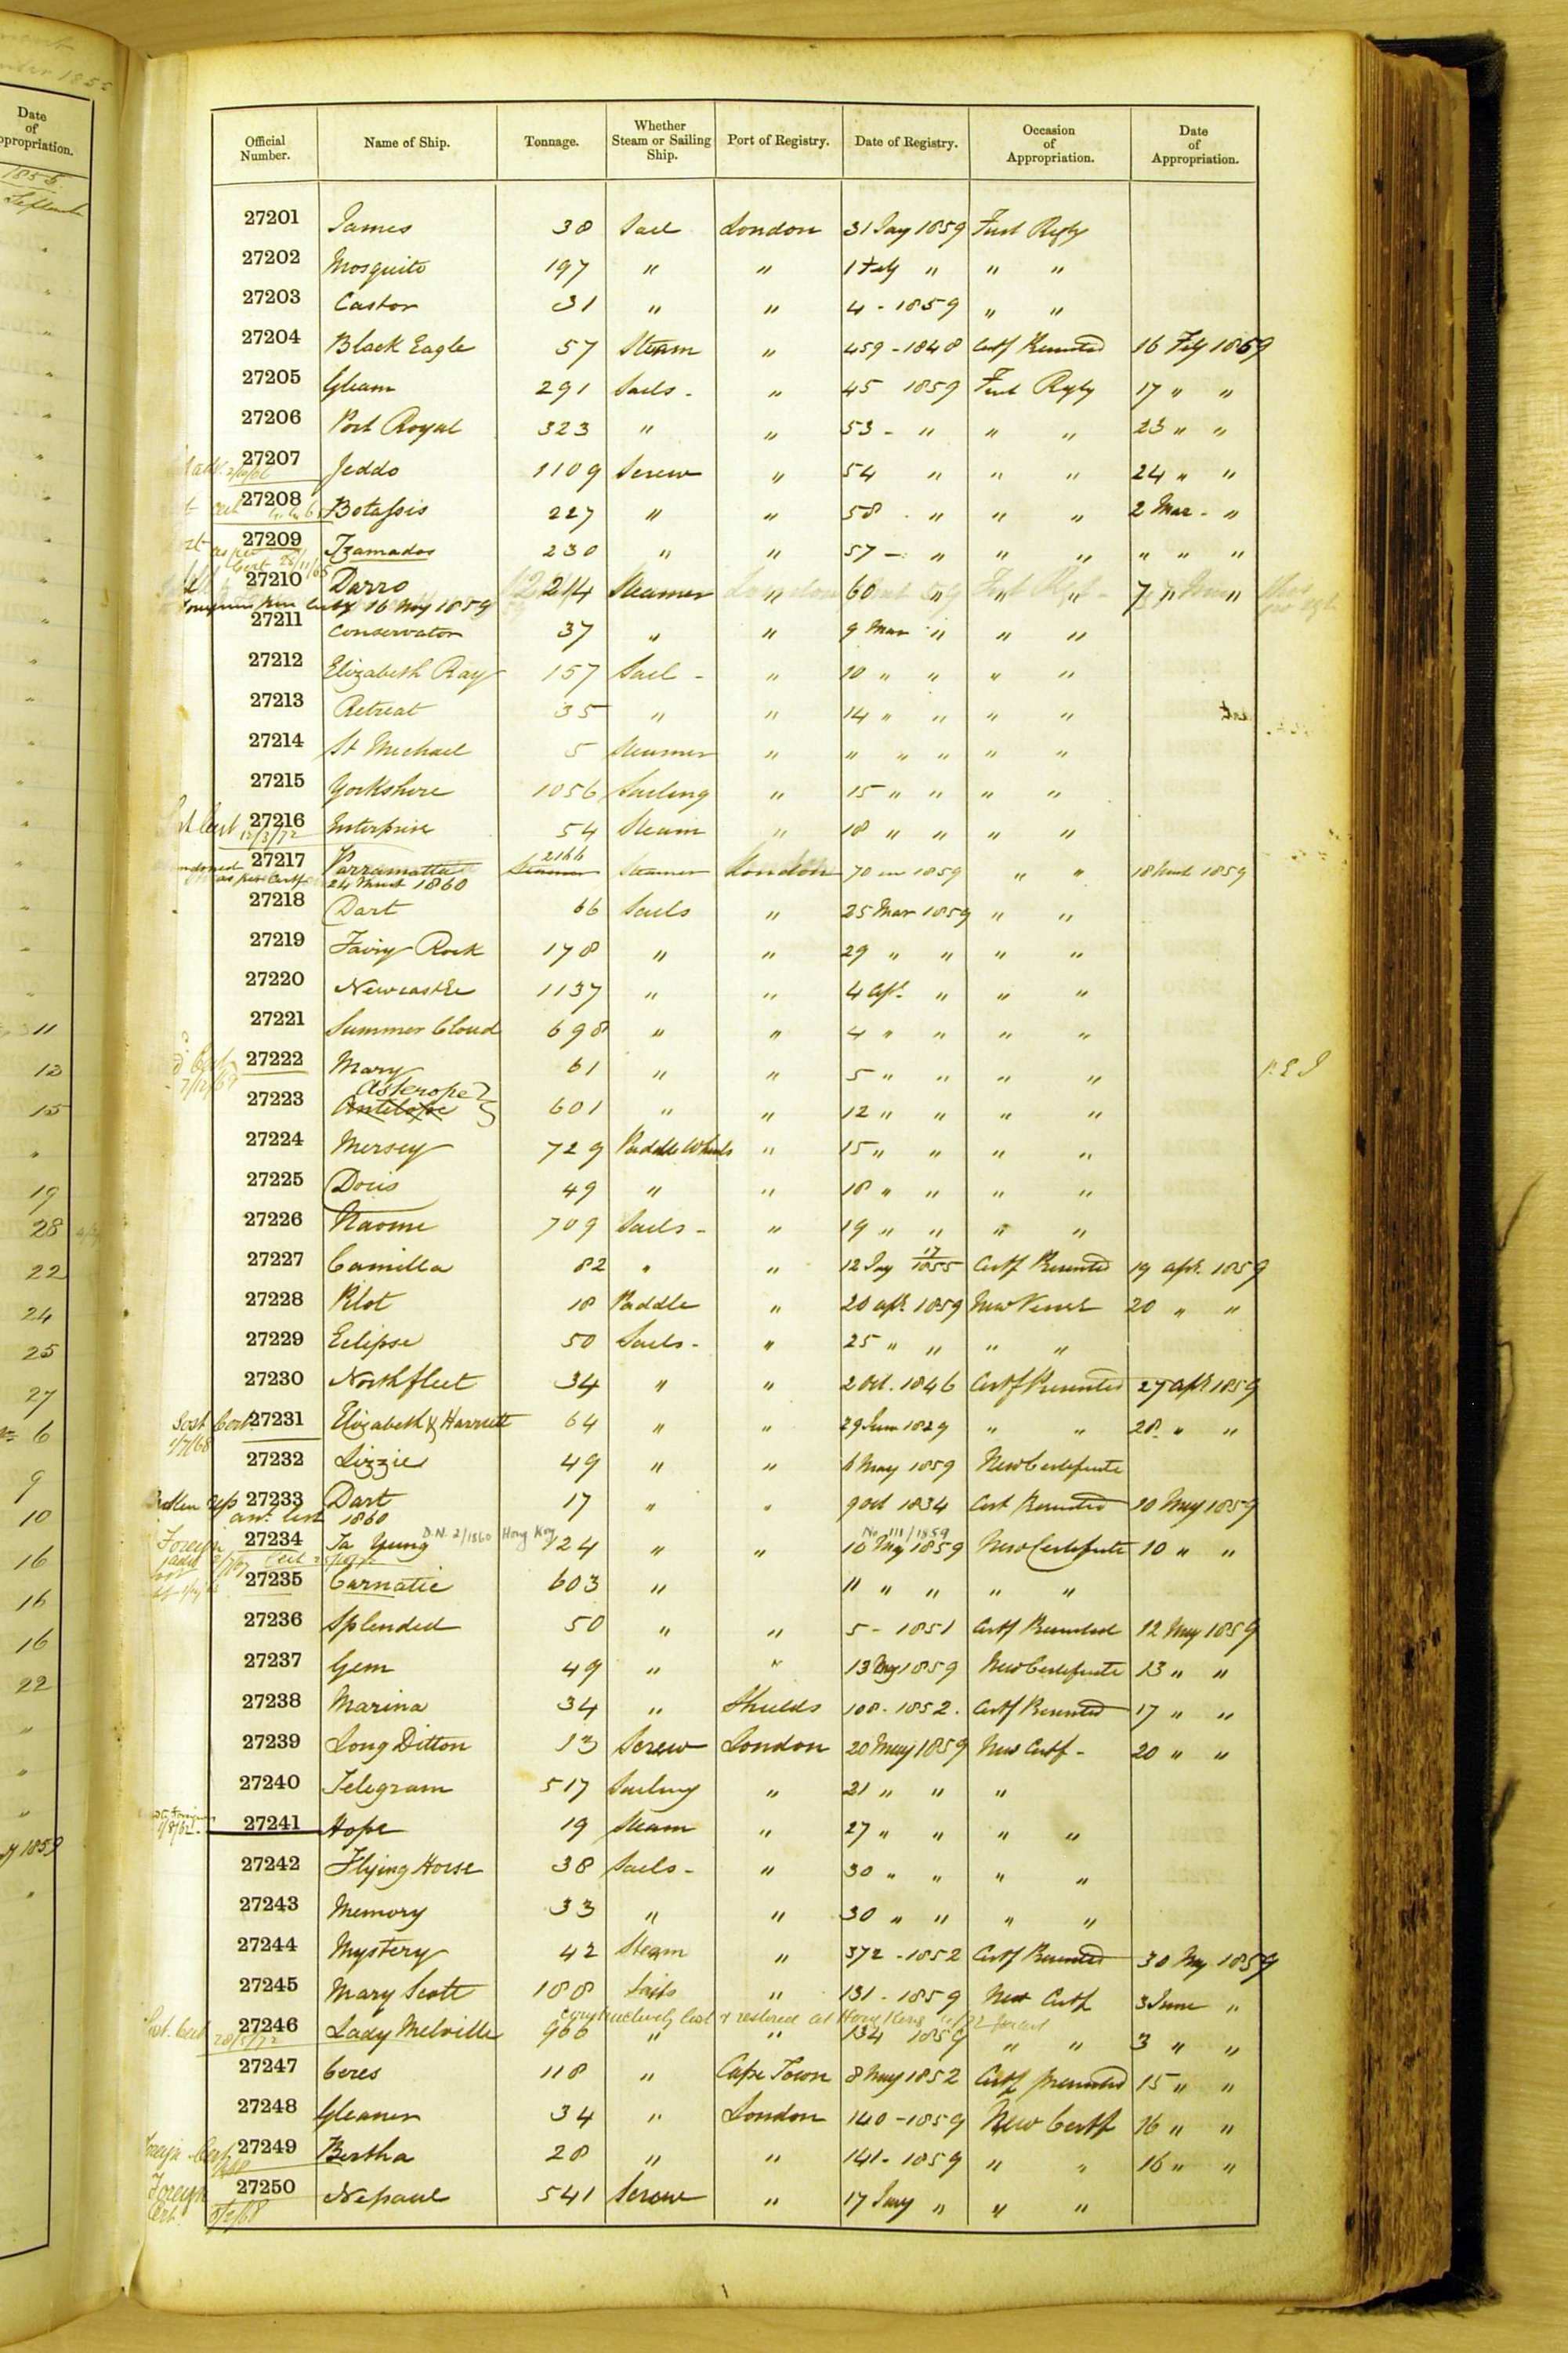 Date
of
ppropriation.
1855
Official
Number.
Name of Ship.
Tonnage.
Whether
Steam or Sailing
Ship.
Port of Registry.
Date of Registry.
Occasion
of
Appropriation.
Date
of
Appropriation.
27201 James 38 Sail London 31 Jay 1859 First Regty
27202 Mosquito 197 " " 1 Feby " " "
27203 Castor 31 " " 4 - 1859 " "
27204 Black Eagle 57 Steam " 459 - 1848 Certf Presented 16 Feby 1859
27205 Gleam 291 Sails - " 45 1859 First Regty 17 " "
27206 Port Royal 323 " " 53 - " " " 23 " "
27207 Jeddo 1109 Screw " 54 " " " 24 " "
27208 Botassis 227 " " 58 - " " " 2 Mar - "
27209 Tzamados 230 " " 57 - " " " " " "
27210 Darro 214 Steamer " 60 " " " 7 " "
16 Nov 1859
27211 Conservator 37 " " 9 Mar " " "
27212 Elizabeth Ray 157 Sail - " 10 " " " "
27213 Retreat 35 " " 14 " " " "
27214 St Michael 5 Steamer " " " " " "
27215 Yorkshire 1056 Sailing " 15 " " " "
27216 Enterprise 54 Steam " 18 " " " "
12/3/72
27217 Parramatta 2166 Steamer London 70 in 1859 " " 18 March 1859
as per Certf 24 March 1860
27218 Dart 66 Sails " 25 Mar 1859 " "
27219 Fairy Rock 178 " " 29 " " " "
27220 Newcastle 1137 " " 4 Apl. " " "
27221 Summer Cloud 698 " " 4 " " " "
27222 Mary 61 " " 5 " " " "
Asterope
27223 Antelope 601 " " 12 " " " "
27224 Mersey 729 Paddle Wheels " 15 " " " "
27225 Doris 49 " " 18 " " " "
27226 Naomi 709 Sails - " 19 " " " "
27227 Camilla 82 " " 12 Jay 17/1855 Certf Presented 19 apl. 1859
27228 Pilot 18 Paddle " 20 apl. 1859 New Vessel 20 " "
27229 Eclipse 50 Sails - " 25 " " " "
27230 Northfleet 34 " " 2 Oct. 1846 Certf Presented 27 apl 1859
Lost Cert 27231 Elizabeth & Harriett 64 " " 29 June 1829 " " 28 " "
1/7/68
27232 Lizzie 49 " " 6 May 1859 New Certificate
Broken up 27233 Dart 17 " " 9 Oct 1834 Cert Presented 10 May 1859
ant. list 1860
D.N. 2/1860 Hong Kong No 111/1859
Foreign 27234 Ta Yung 124 " " 10 May 1859 New Certificate 10 " "
27235 Carnatic 603 " 11 " " " "
27236 Splended 50 " " 5 - 1851 Certf Presented 12 May 1859
27237 Gem 49 " " 13 May 1859 New Certificate 13 " "
27238 Marina 34 " Shields 108 - 1852. Certf Presented 17 " "
27239 Long Ditton 13 Screw London 20 May 1859 New Certf - 20 " "
27240 Telegram 517 Sailing " 21 " " "
27241 Hope 19 Steam " 27 " " " "
27242 Flying Horse 38 Sails - " 30 " " " "
27243 Memory 33 " " 30 " " " "
27244 Mystery 42 Steam " 372 - 1852 Certf Presented 30 May 1859
27245 Mary Scott 188 Sails " 131 - 1859 New Certf 3 June "
Constructively lost & restored at Hong Kong
27246 Lady Melville 966 " " 134 1859 " " 3 " "
28/5/72
27247 Ceres 118 " Cape Town 8 May 1852 Certf presented 15 " "
27248 Gleaner 34 " London 140 - 1859 New Certf 16 " "
27249 Bertha 28 " " 141 - 1859 " " 16 " "
Foreign 27250 Nepaul 541 Screw " 17 Jany " " "
Cert.